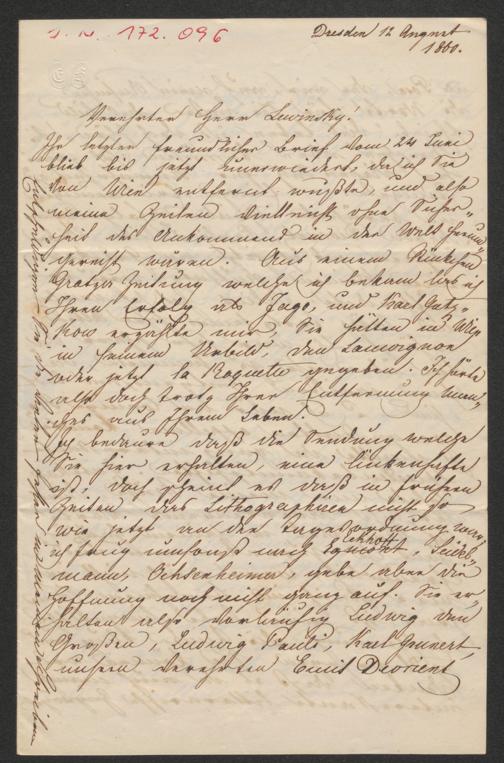 J. N. 172.096
Dresden 12 August
1860.
Verehrter Herr Lewinsky!
Ihr letzter freundlicher Brief vom 24 Juni
blieb bis jetzt unerwiedert, da ich Sie
von Wien entfernt wußte, und also
meine Zeilen vielleicht ohne Sicher-
heit des Ankommens in der Welt herum-
gereist wären. Aus einem Stückchen
Grazer Zeitung welche ich bekam las ich
Ihren Erfolg als Jago, und Karl Gutz-
kow erzählte mir, Sie hätten in Wien
in seinem Urbild den Lamoignon
oder jetzt la Roquette gegeben. Ich hörte
also doch trotz Ihrer Entfernung man-
ches aus Ihrem Leben.
Ich bedaure daß die Sendung welche
Sie hier erhalten, eine lückenhafte
ist, doch scheint es daß in frühern
Zeiten das Lithographiren nicht so
wie jetzt an der Tagesordnung war;
ich frug umsonst nach Eckhoff, Seidel-
mann, Ochsenheimer, gebe aber die
Hoffnung noch nicht ganz auf. Sie er-
halten also vorläufig Ludwig den
Großen, Ludwig Pauli, Karl Grunert,
unsern verehrten Emil Devrient